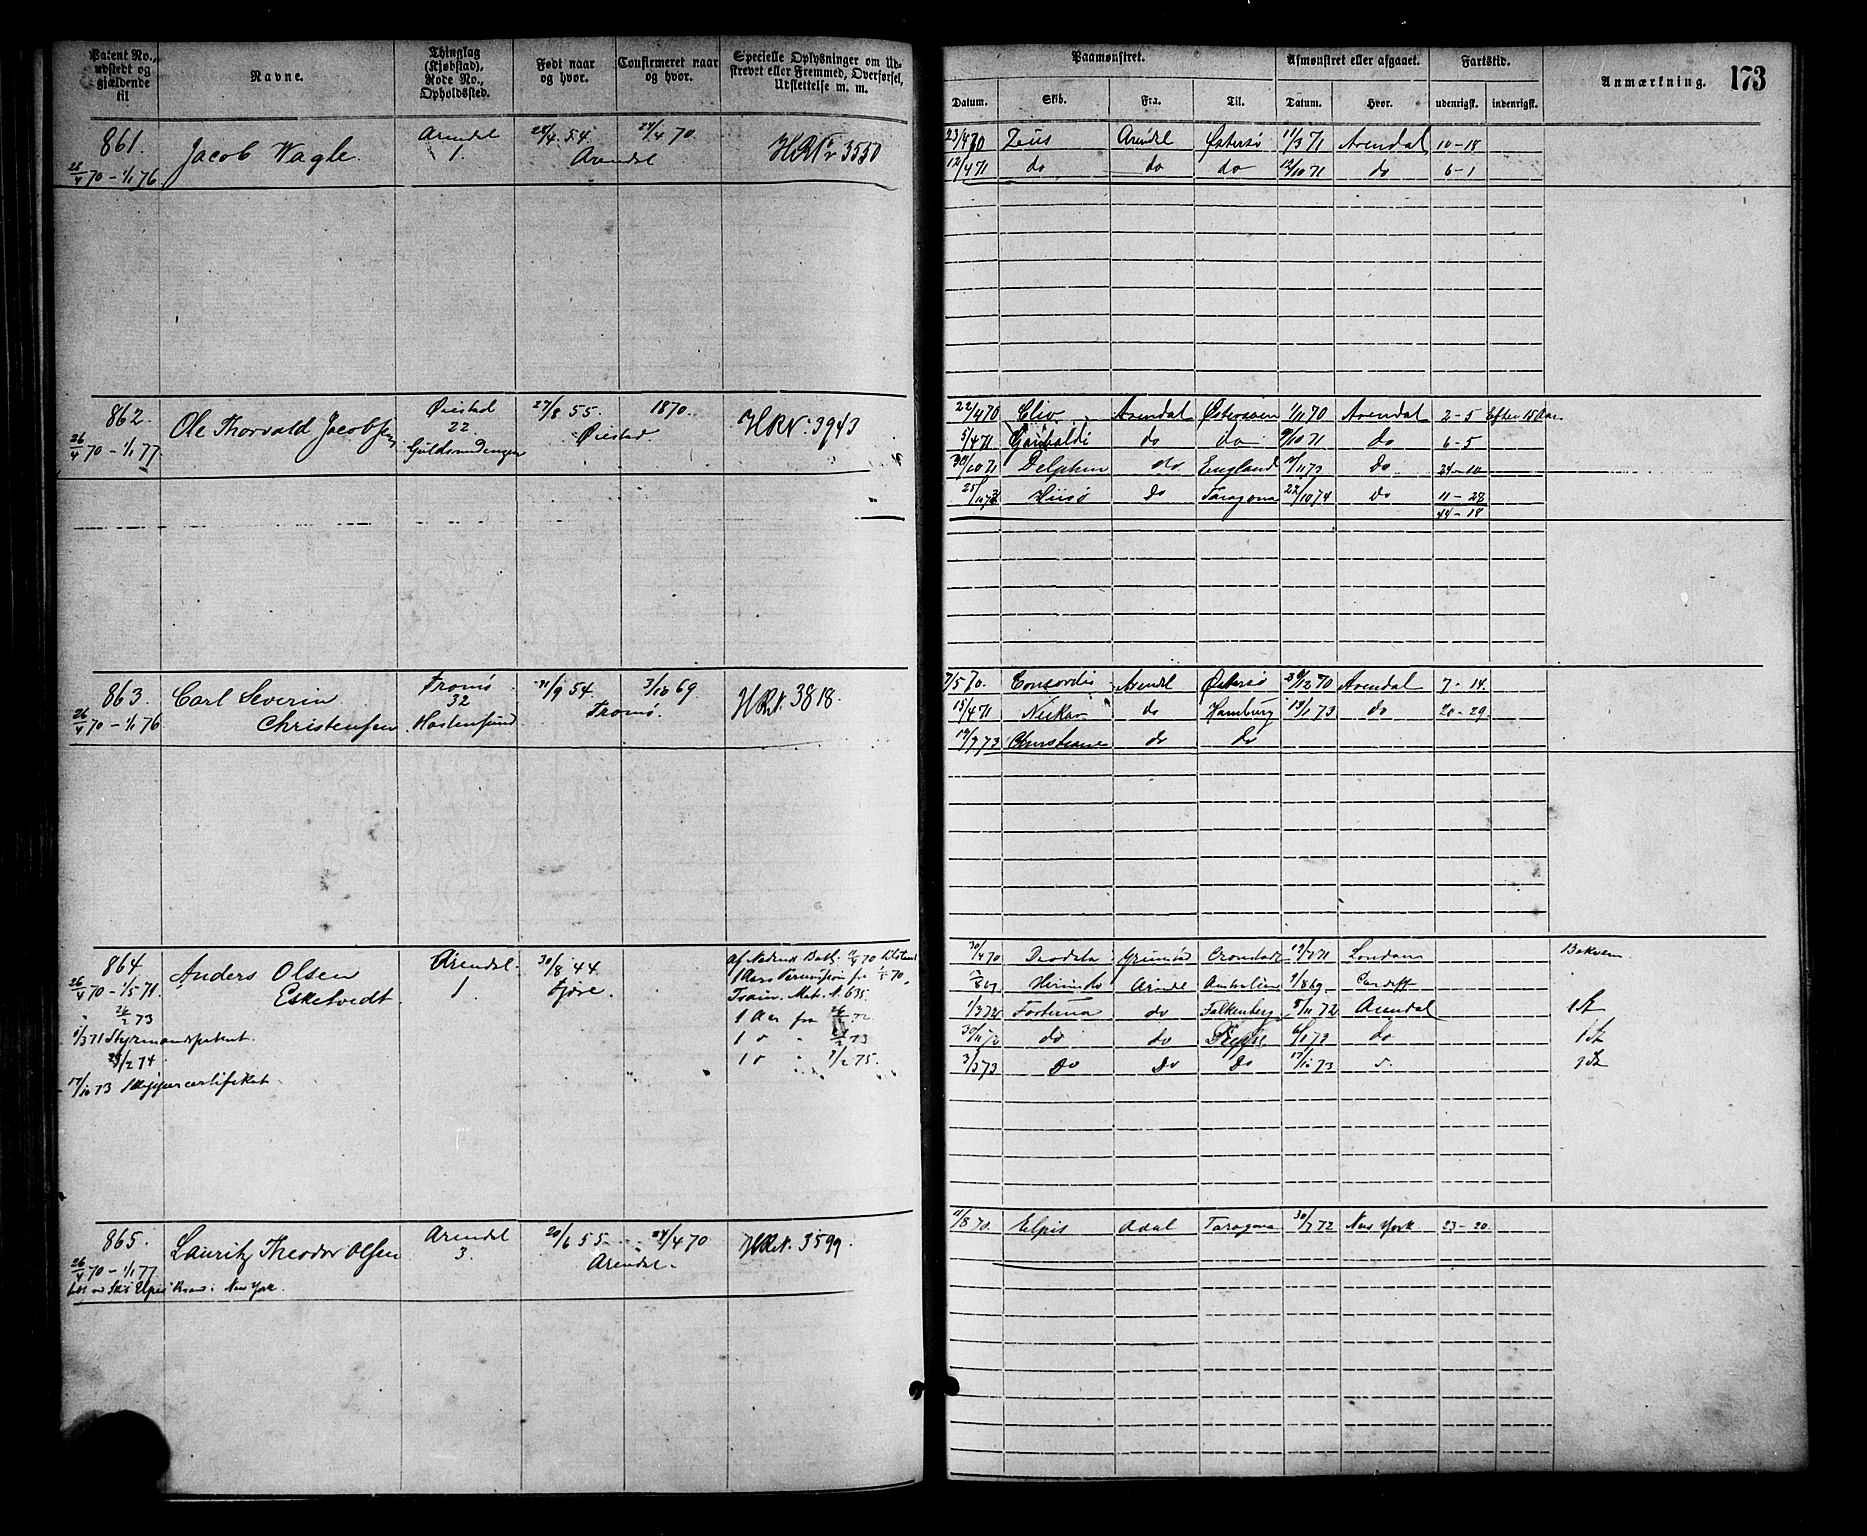 Patent No., udstedt og gjældende til
Navne.
Thinglag (Kjøbstad), Rode No., Opholdssted.
Født naar og hvor.
Confirmeret naar og hvor.
Specielle Oplysninger om Udskrevet eller Fremmed, Overførsel, Udslettelse m. m.
Paamønstret.
Afmønstret eller afgaaet.
Fartstid.
Anmærkning.
173
Datum. Skib. Fra. Til. Datum. Hvor. udenrigsk. indenrigsk.
861. Jacob Wagle. Arendal 1. 28/4 54. 24/4 70 HRNr 3550
26/4 70 – 1/1 76 Arendal
23/4 70 Zeus Arendal Østersø 11/3 71 Arendal 10-18
12/4 71 do do do 12/10 71 do 6-1
862. Ole Thorvald Jacobsen Øiestad 22. 27/8 55. 1870. HRN: 3943
26/4 70 – 1/1 77 Guldsmedengen Øiestad
22/4 70 Clio Arendal Østersøen 1/11 70 Arendal 2-5 Efter 15 Aar
5/4 71 Garibaldi do do 9/10 71 do 6-5
30/10 71 Delphin do England 11/73 do 24-10
25/10 73 Hiisø do Taragona 22/10 74 do 11-28
44-18
863. Carl Severin Tromø 32 21/9 54. 3/10 69. HRN. 3818.
26/4 70 – 1/1 76 Christensen Hastensund Tromø.
7/5 70. Concordia Arendal Østersø 29/12 70 Arendal 7-14.
15/4 71 Neckar do Hamburg 13/1 73 do 20-29.
19/7 73 Christiane do do
864. Anders Olsen Arendal 1 30/8 44.
26/4 70 – 1/5 71. Esketvedt. Fjære.
1 Aars Permission fra 1/5 70,
Train. Mat. N. 635.
26/2 73 1 Aar fra
1/3 71 Styrmandspatent.
28/2 74
1/2 75.
17/10 73 Skippercertifikat
30/4 70 Deodata Grimstad Cronstadt 19/7 71 London
69 Hirundo Arendal Australien 1/8 69 Cardiff
1/3 72 Fortuna do Falkenberg 5/11 72 Arendal 1 St
30/11 72 do do 6/1 73 do 1 St
3/5 73 Do Do Do 17/10 73
865. Lauritz Theodor Olsen Arendal 3. 20/6 55. 24/4 70 HRN. 3599.
26/4 70 – 1/1 77 Arendal.
New York.
11/8 70. Elpis Odal Taragona 30/7 72 New York 23-20